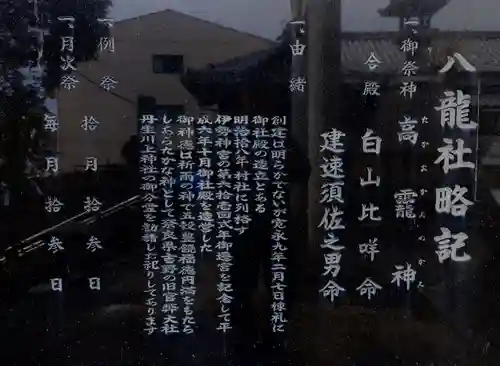 八龍社略記
一、御祭神 高龗神
たかおかみのかみ
合殿 白山比咩命
建速須佐之男命
一、由緒
創建は明らかでないが寛永九年二月七日棟札に
御社殿の造立とある
明治拾八年 村社に列格す
伊勢神宮の第六拾壱回式年御遷宮を記念して平
成六年十月御社殿を造営した
御神徳は祈雨の神で五穀豊饒福徳円満をもたら
しあらたかな神として奈良県吉野の旧官幣大社
丹生川上神社の御分霊を勧請しお祀りしてあります
一、例祭 拾月拾参日
一、月次祭 毎月拾参日